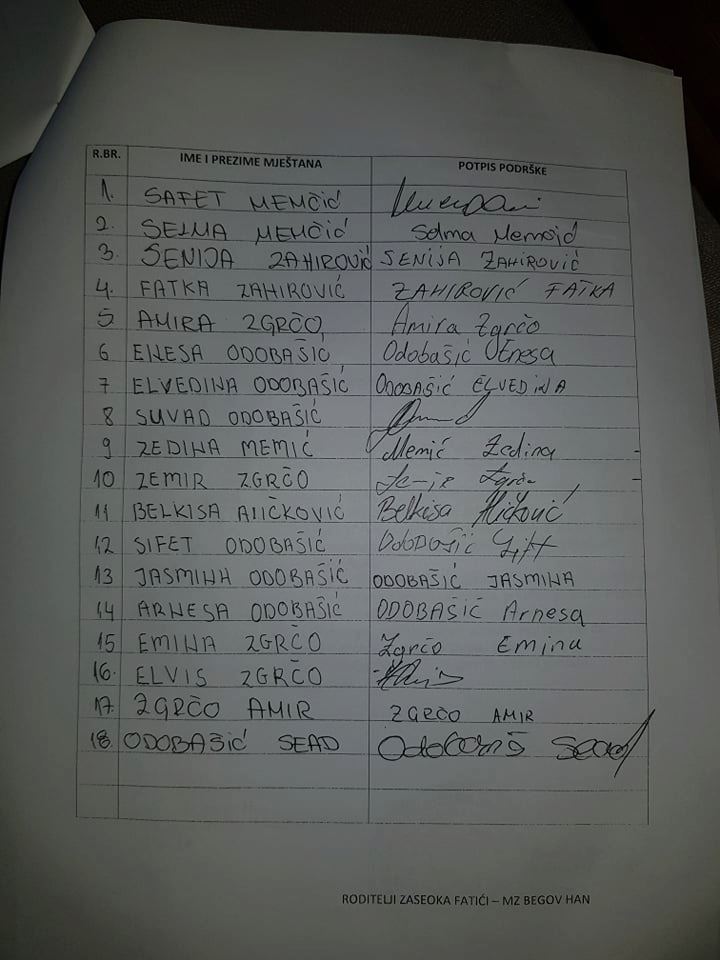 R.BR. IME I PREZIME MJEŠTANA POTPIS PODRŠKE
1. SAFET MEMČIĆ
2. SELMA MEMČIĆ Selma Memčić
3. SENIJA ZAHIROVIĆ SENIJA ZAHIROVIĆ
4. FATKA ZAHIROVIĆ ZAHIROVIĆ FATKA
5 AMIRA ZGRČO Amira Zgrčo
6 ENESA ODOBAŠIĆ Odobašić Enesa
7 ELVEDINA ODOBAŠIĆ ODOBAŠIĆ ELVEDINA
8 SUVAD ODOBAŠIĆ
9 ZEDINA MEMIĆ Memić Zedina
10 ZEMIR ZGRČO Zgrčo
11 BELKISA Belkisa
12 SIFET ODOBAŠIĆ Odobašić
13 JASMINA ODOBAŠIĆ ODOBAŠIĆ JASMINA
14 ARNESA ODOBAŠIĆ ODOBAŠIĆ Arnesa
15 EMINA ZGRČO Zgrčo Emina
16. ELVIS ZGRČO
17. ZGRČO AMIR ZGRČO AMIR
18. ODOBAŠIĆ SEAD Sead
RODITELJI ZASEOKA FATIĆI – MZ BEGOV HAN